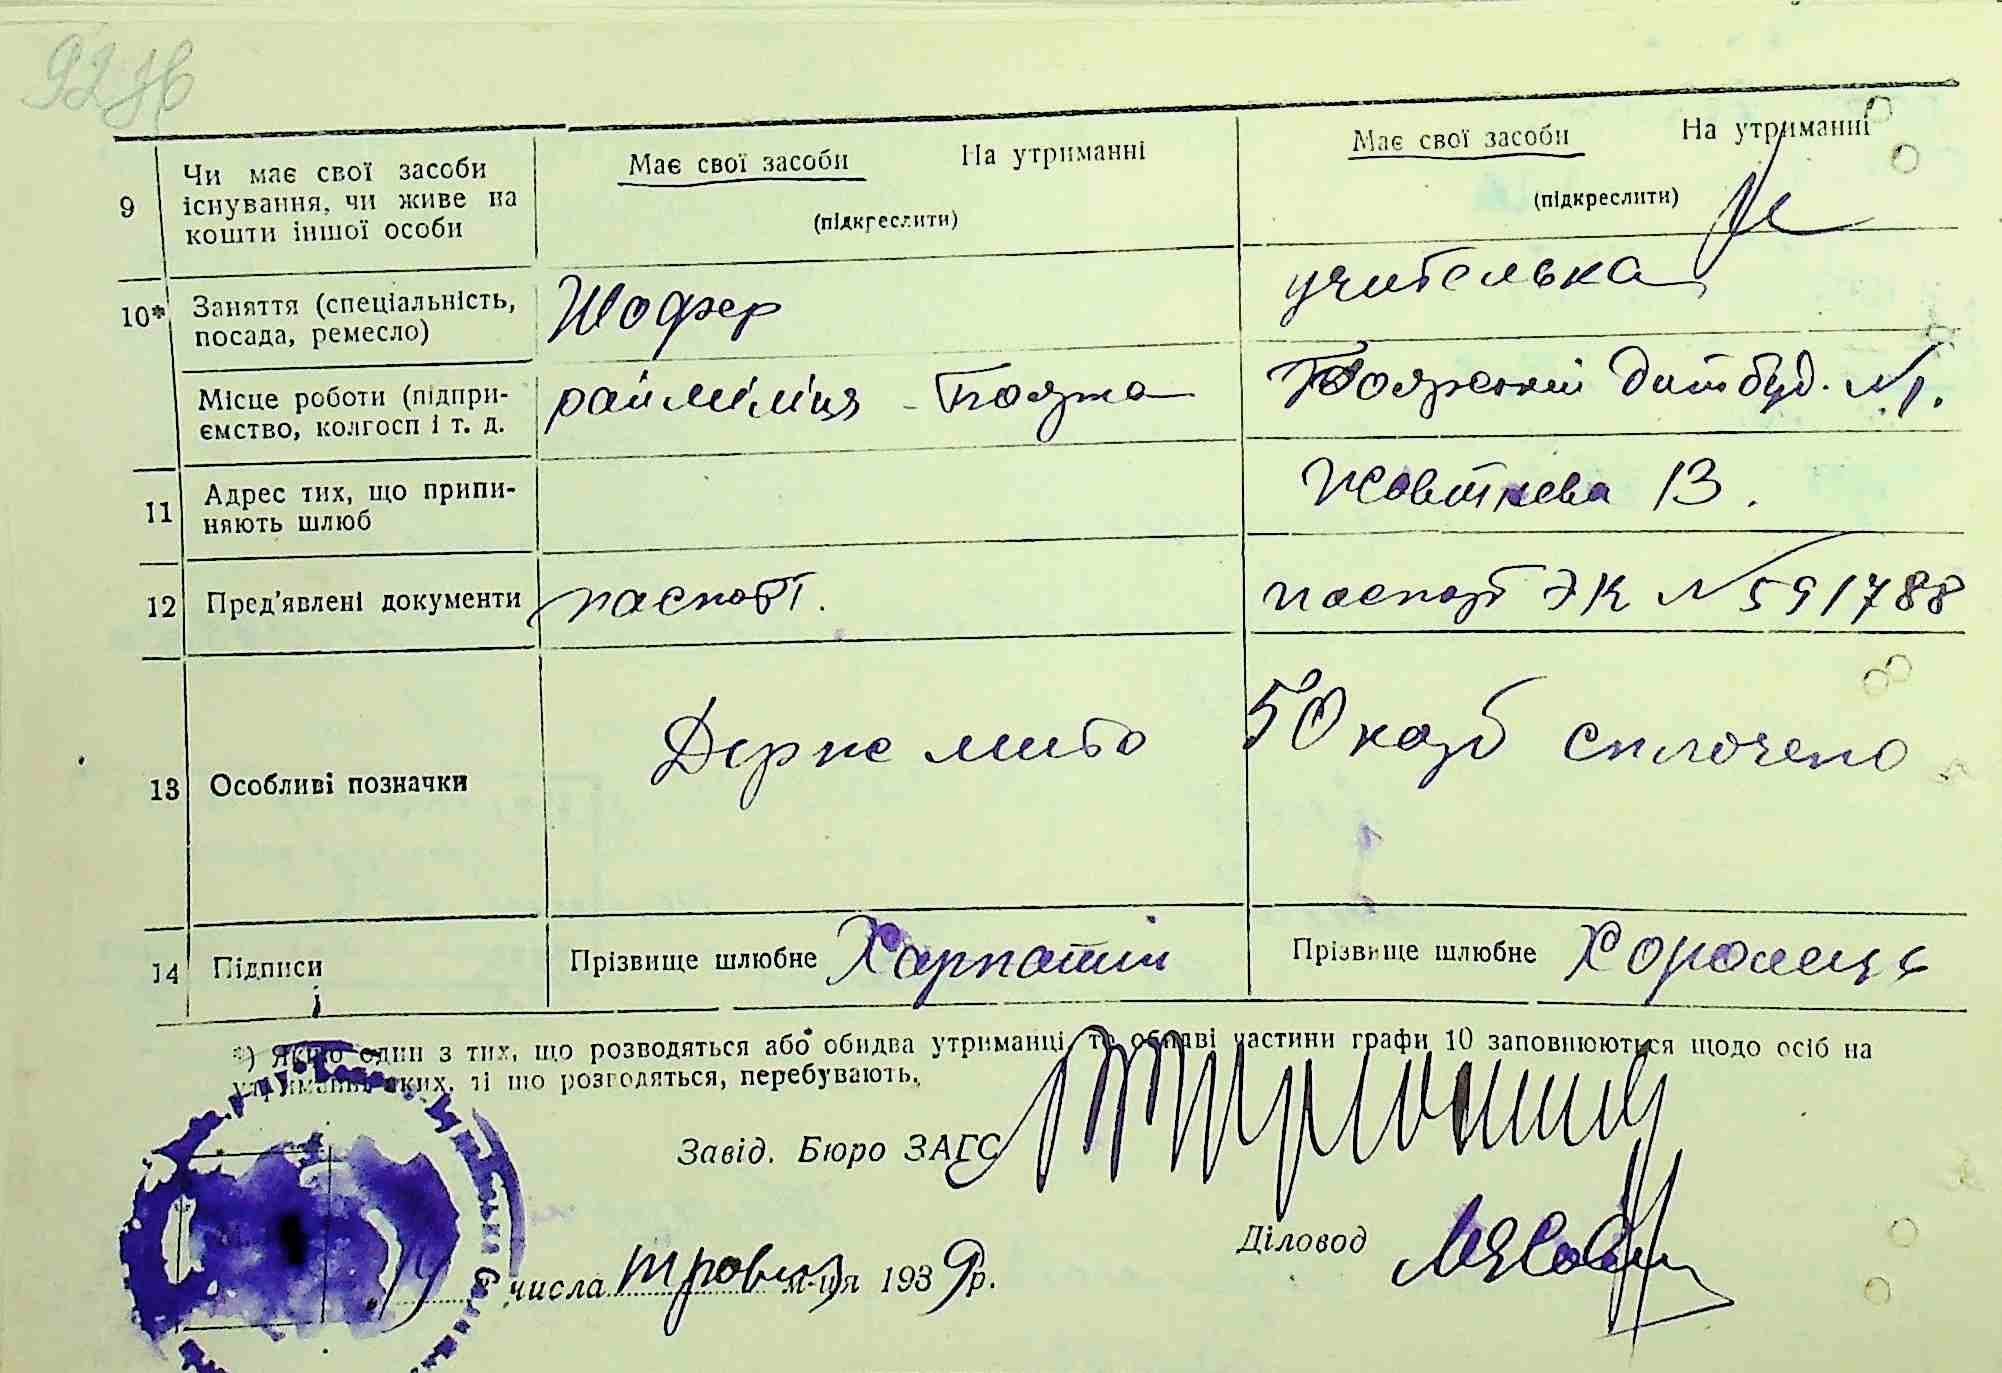 9 Чи має свої засоби існування, чи живе на кошти іншої особи
Має свої засоби На утриманні
(підкреслити)
Має свої засоби На утриманні
(підкреслити)
10* Заняття (спеціальність, посада, ремесло)
Шофер
учителька
Місце роботи (підприємство, колгосп і т. д.
райміліція - Боярка
Боярський дитбуд. №1.
11 Адрес тих, що припиняють шлюб
Жовтнева 13.
12 Пред'явлені документи
паспорт.
паспорт ЭК №591788
13 Особливі позначки
Держ мито 50 карб сплочено
14 Підписи
Прізвище шлюбне
Прізвище шлюбне
*) Якщо один з тих, що розводяться або обидва утриманці, то обидві частини графи 10 заповнюються щодо осіб на
утриманні яких, ті що розводяться, перебувають.
Завід. Бюро ЗАГС
Діловод
14 числа травня м-ця 1939 р.